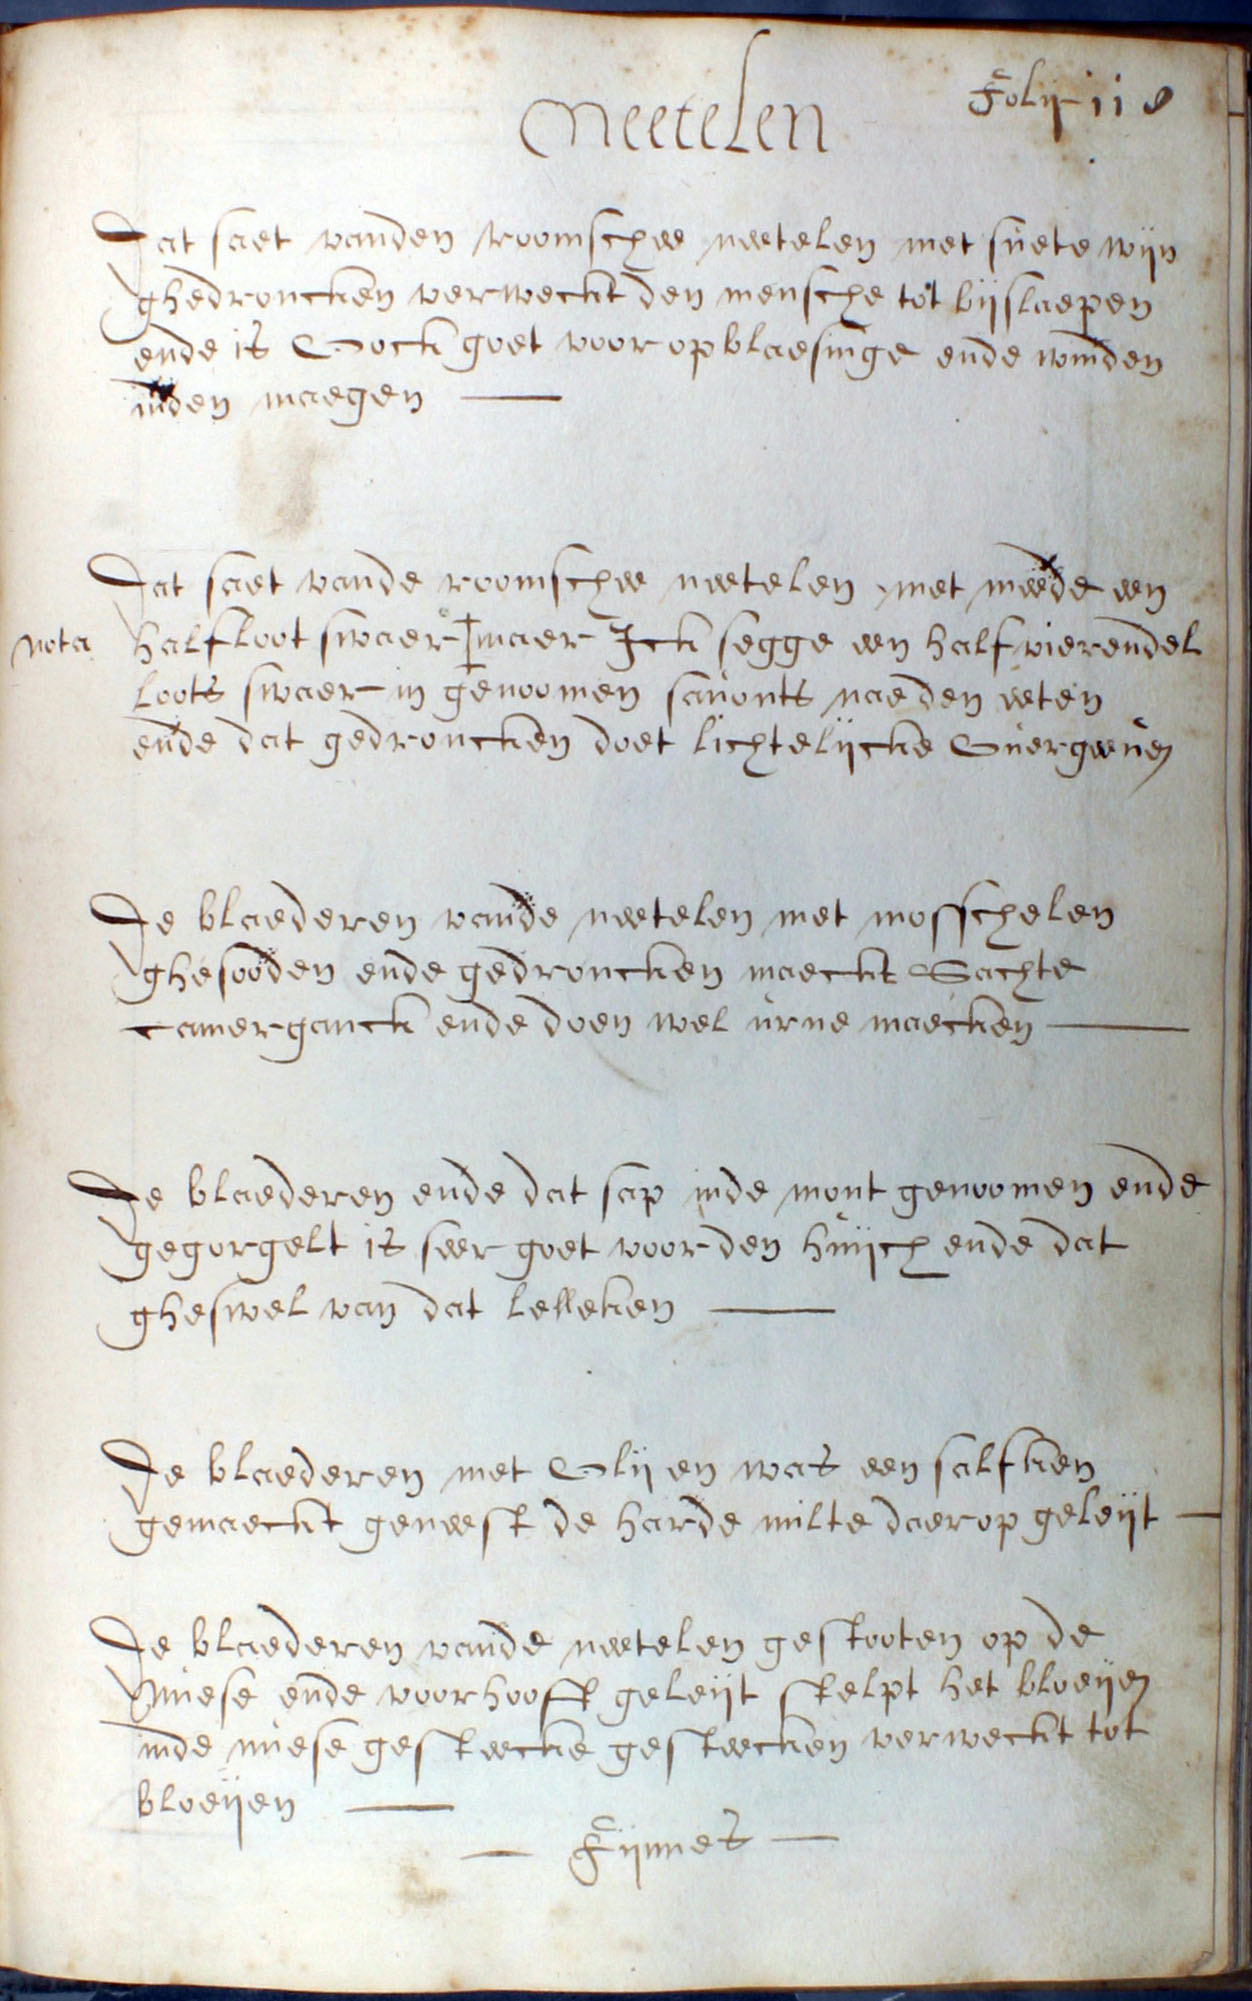 Folij 118
Neetelen
Dat saet vanden roomschee neetelen met suete wijn
ghedroncken verweckt den mensche tot bijslaepen
ende is Oock goet voor opblaesinge ende winden
inden maegen
Dat saet vande roomschee neetelen met meede een
nota halfloot swaer maer Ick segge een half vierendel
loots swaer in genoomen sauonts nae den eeten
ende dat gedroncken doet lichtelijcke Ouergeeuen
De blaederen vande neetelen met mosschelen
ghesooden ende gedroncken maeckt Sachte
camerganck ende doen wel urne maecken
De blaederen ende dat sap inde mont genoomen ende
gegorgelt is seer goet voor den huijch ende dat
gheswel van dat lelleken
De blaederen met Olij en was een salfken
gemaeckt geneest de harde milte daer op geleijt
De blaederen vande neetelen gestooten op de
Nuese ende voorhooft geleijt stelpt het bloeijen
inde nuese gesteecke gesteecken verweckt tot
bloeijen
Fijnnes